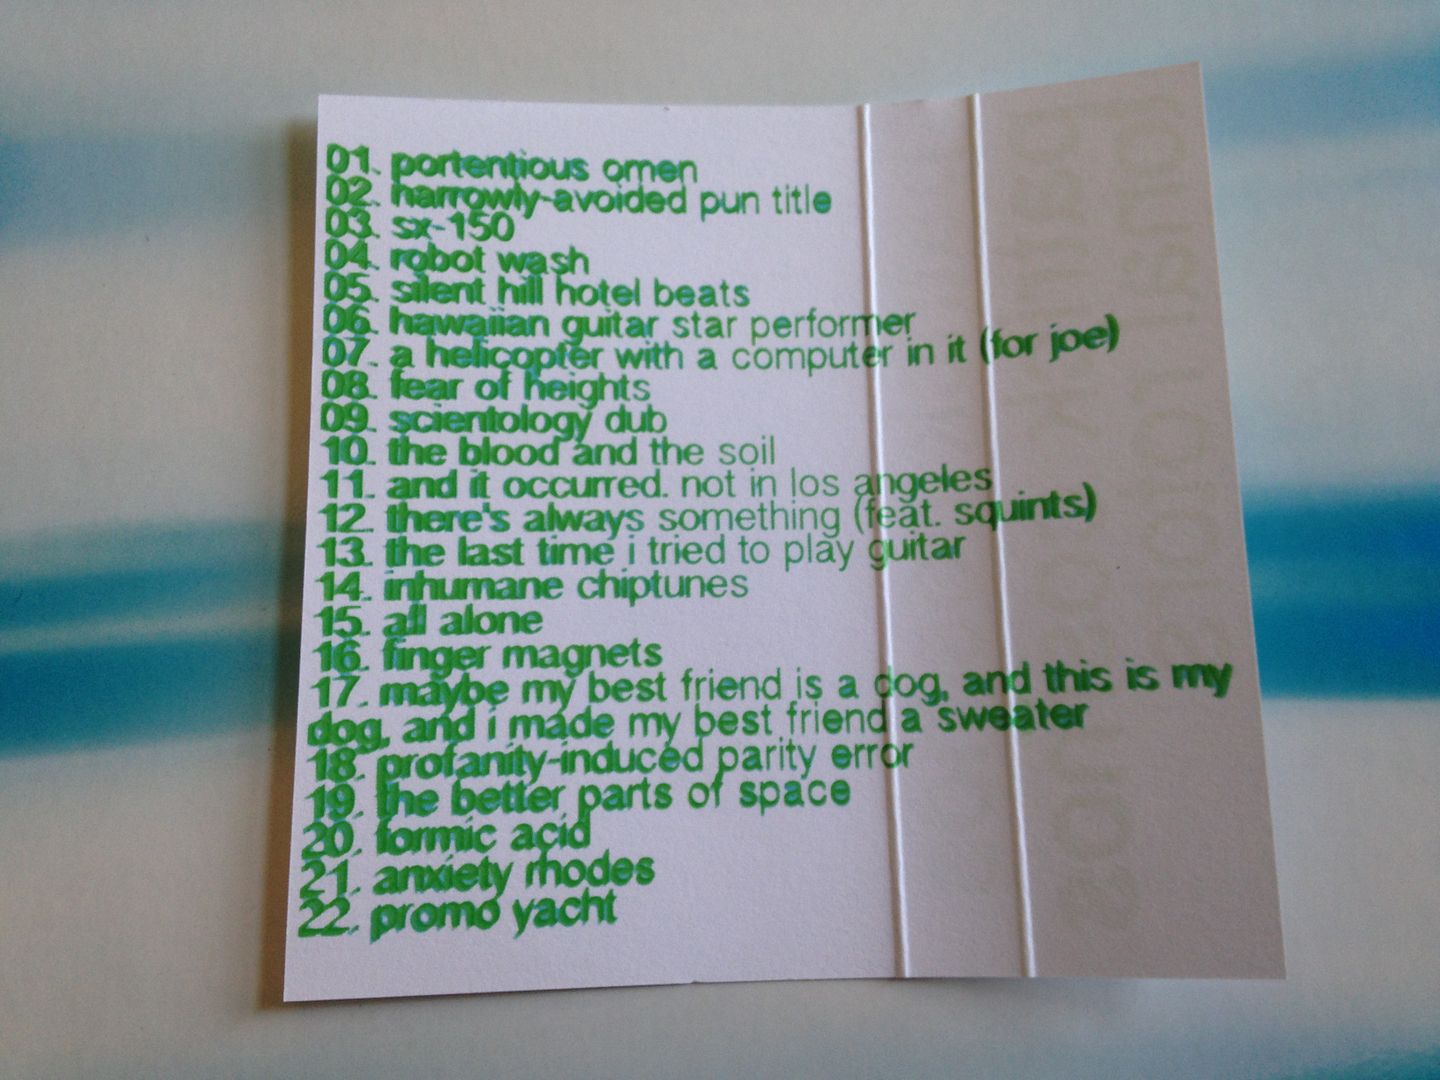 01. portentious omen
02. narrowly-avoided pun title
03. sx-150
04. robot wash
05. silent hill hotel beats
06. hawaiian guitar star performer
07. a helicopter with a computer in it (for joe)
08. fear of heights
09. scientology dub
10. the blood and the soil
11. and it occurred. not in los angeles
12. there's always something (feat. squints)
13. the last time i tried to play guitar
14. inhumane chiptunes
15. all alone
16. finger magnets
17. maybe my best friend is a dog, and this is my
dog, and i made my best friend a sweater
18. profanity-induced parity error
19. the better parts of space
20. formic acid
21. anxiety rhodes
22. promo yacht